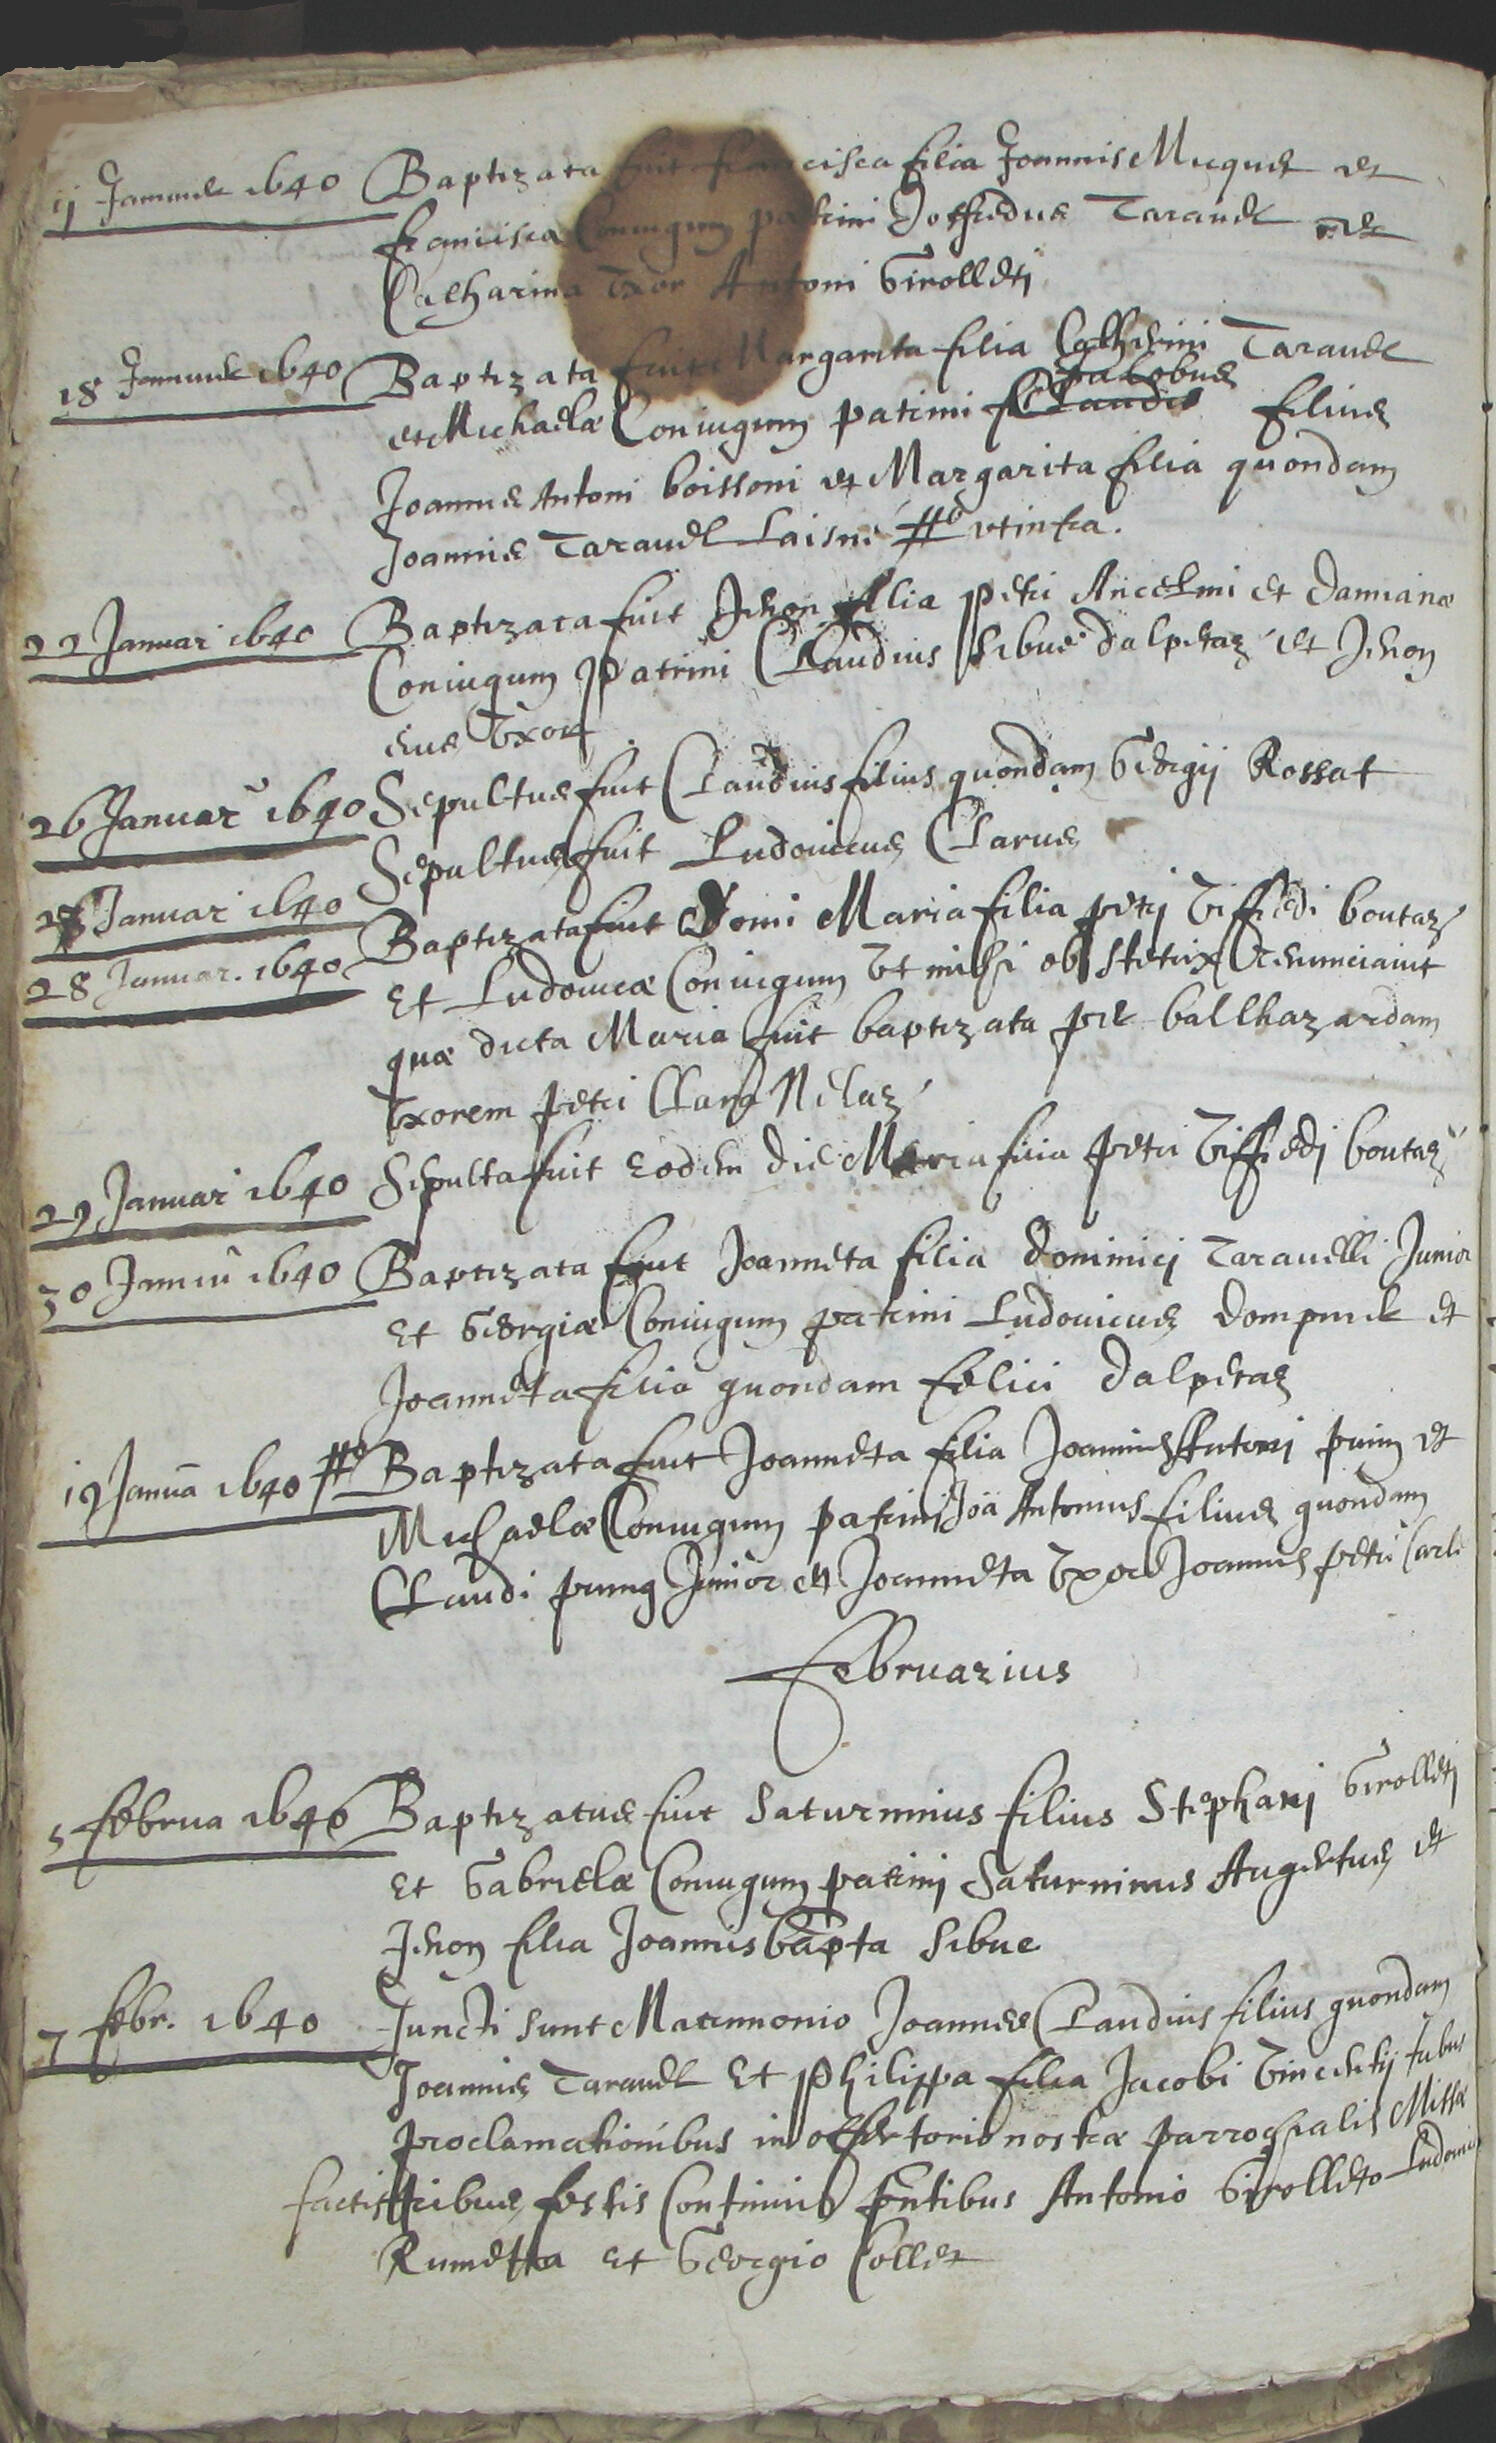 11 Januarii 1640 Baptizata fuit Francisca filia Joannis Muquet et
franciscæ Coniugum patrini Joffredus Taravel et
Catharina Uxor Antoni Girolleti
18 Januarii 1640 Baptizata fuit Margarita filia Catherini Taravel
et Michaelæ Coniugum patrini Claudis Jacobus filius
Joannis Antoni boissoni et Margarita filia quondam
Joannis Taravel Laisné # ut infra.
22 Januar 1640 Baptizata fuit Jenon filia petri Ancelmi et Damianæ
Coniugum Patrini Claudius Sibue dalpetaz et Jenon
eius Uxor
26 Januar 1640 Sepultus fuit Claudius filius quondam Georgii Rossat
27 Januar 1640 Sepultus fuit Ludovicus Clarus
28 Januar. 1640 Baptizata fuit Domi Maria filia petri Viffredi boutaz
Et Ludovicæ Coniugum Ut mihi obstetrix renunciavit
quæ dicta Maria fuit baptizata per balthazardam
Uxorem petri Claraz
29 Januar 1640 Sepulta fuit eodem die Maria filia petri Viffredi boutaz
30 Januar 1640 Baptizata fuit Joanneta filia Dominici Taravelli Junior
Et Georgiæ Coniugum patrini Ludovicus Dompnie et
Joanneta filia quondam felici Dalpetaz
19 Januā 1640 # Baptizata fuit Joanneta filia Joannis Antoni prim et
Michaelæ Coniugum patrini Joā Antonius filius quondam
Claudi Junior et Joanneta Uxor Joannis petri Carli
Februarius
5 februa 1640 Baptizatus fuit Saturninus filius Stephani Girolleti
Et Gabrielæ Coniugum patrini Saturninus Augertus et
Jenon filia Joannis bapta Sibue
7 febr. 1640 Juncti sunt Matrimonio Joannes Claudius filius quondam
Joannis Taravel Et Philippa filia Jacobi Vincentii tribus
proclamationibus in offertorio nostræ parrochialis Missæ
factis tribus festis Continuis Antonio Girolleto Ludovico
Rumetta et Georgio Collet